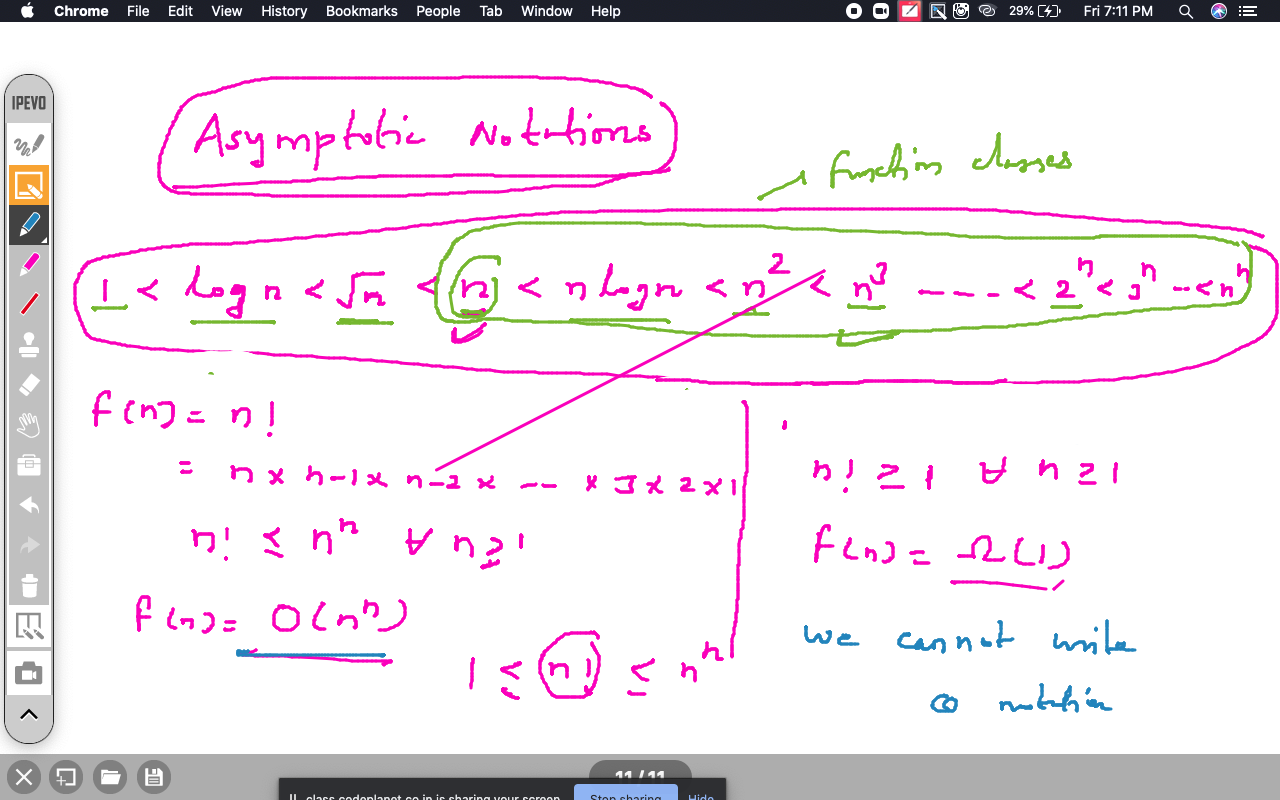 Chrome File Edit View History Bookmarks People Tab Window Help 29% Fri 7:11 PM
IPEVO
Asymptotic Notations
function classes
1 < log n < √n < n < n log n < n² < n³ ---- < 2ⁿ < 3ⁿ -- < nⁿ
f(n) = n!
= n × n-1 × n-2 × -- × 3 × 2 × 1
n! ≤ nⁿ ∀ n ≥ 1
f(n) = O(nⁿ)
1 ≤ n! ≤ nⁿ
n! ≥ 1 ∀ n ≥ 1
f(n) = Ω(1)
we cannot write
Θ notation
11 / 11
class.codeplanet.co.in is sharing your screen. Stop sharing Hide